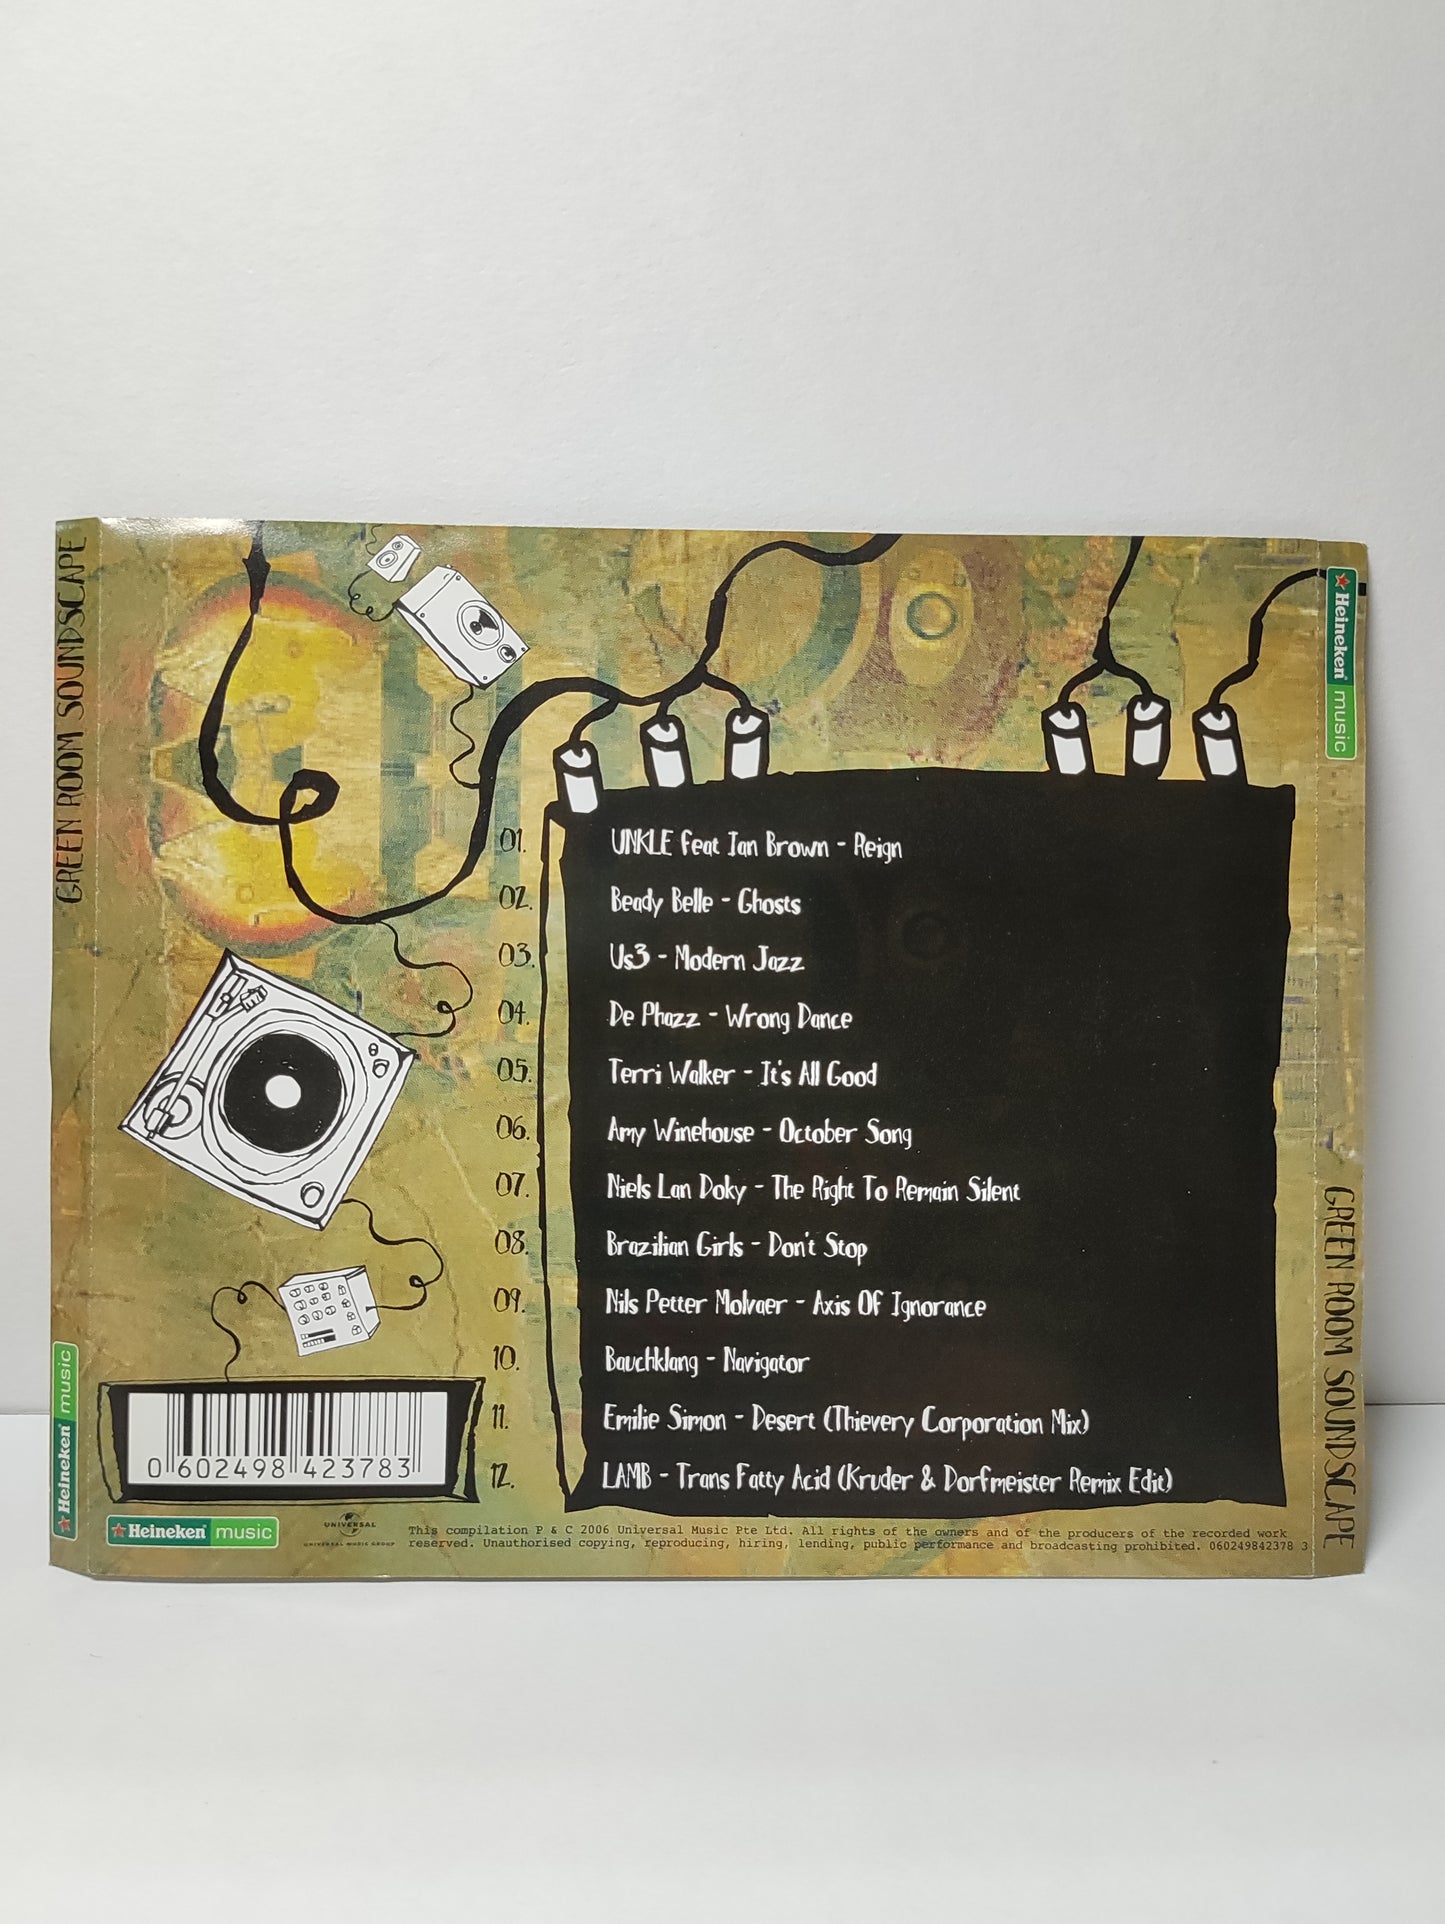 GREEN ROOM SOUNDSCAPE
Heineken music
01. UNKLE feat Ian Brown - Reign
02. Beady Belle - Ghosts
03. Us3 - Modern Jazz
04. De Phazz - Wrong Dance
05. Terri Walker - It's All Good
06. Amy Winehouse - October Song
07. Niels Lan Doky - The Right To Remain Silent
08. Brazilian Girls - Don't Stop
09. Nils Petter Molvaer - Axis Of Ignorance
10. Bauchklang - Navigator
11. Emilie Simon - Desert (Thievery Corporation Mix)
12. LAMB - Trans Fatty Acid (Kruder & Dorfmeister Remix Edit)
0 602498 423783
Heineken music
UNIVERSAL
UNIVERSAL MUSIC GROUP
This compilation P & C 2006 Universal Music Pte Ltd. All rights of the owners and of the producers of the recorded work
reserved. Unauthorised copying, reproducing, hiring, lending, public performance and broadcasting prohibited. 060249842378 3
Heineken music
GREEN ROOM SOUNDSCAPE